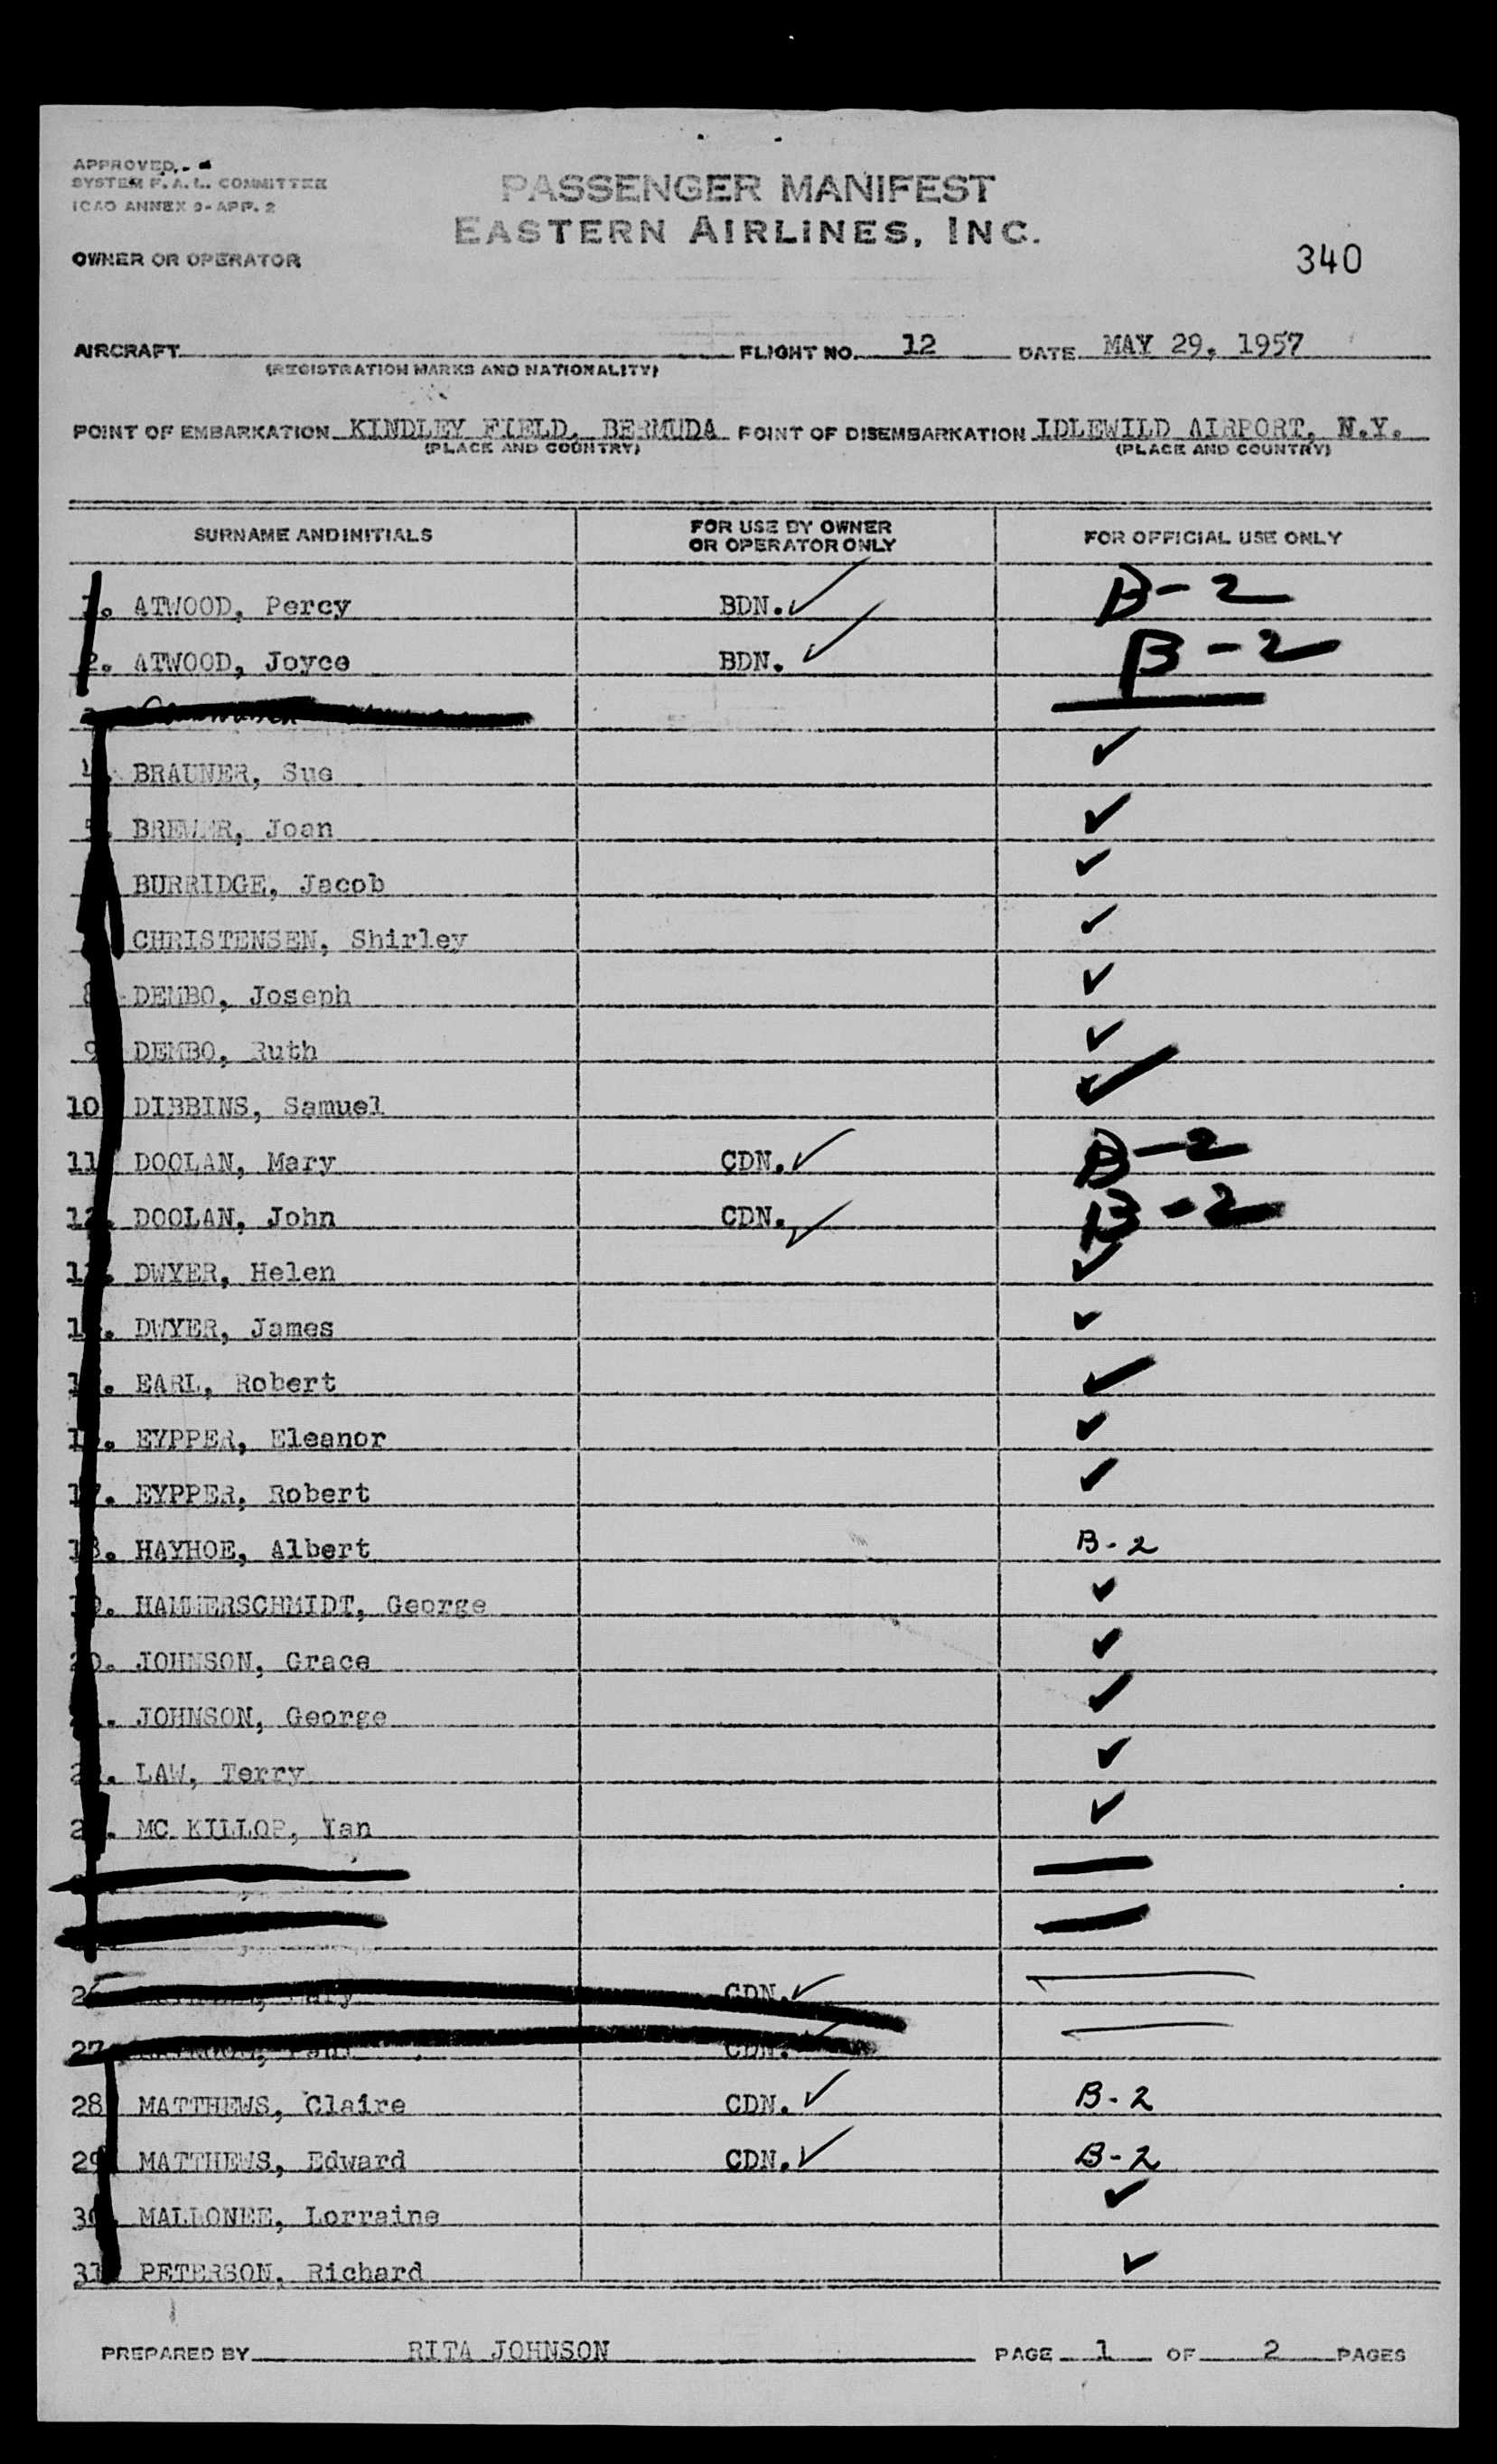 APPROVED
SYSTEM F.A.L. COMMITTEE
ICAO ANNEX 9-APP. 2
PASSENGER MANIFEST
EASTERN AIRLINES, INC.
OWNER OR OPERATOR
340
AIRCRAFT FLIGHT NO. 12 DATE MAY 29, 1957
(REGISTRATION MARKS AND NATIONALITY)
POINT OF EMBARKATION KINDLEY FIELD, BERMUDA POINT OF DISEMBARKATION IDLEWILD AIRPORT, N.Y.
(PLACE AND COUNTRY) (PLACE AND COUNTRY)
SURNAME AND INITIALS FOR USE BY OWNER OR OPERATOR ONLY FOR OFFICIAL USE ONLY
1. ATWOOD, Percy BDN. ✓ B-2
2. ATWOOD, Joyce BDN. ✓ B-2
4. BRAUNER, Sue ✓
5. BREWER, Joan ✓
BURRIDGE, Jacob ✓
CHRISTENSEN, Shirley ✓
8. DEMBO, Joseph ✓
9. DEMBO, Ruth ✓
10. DIBBINS, Samuel ✓
11. DOOLAN, Mary CDN. ✓ B-2
12. DOOLAN, John CDN. ✓ B-2
13. DWYER, Helen ✓
14. DWYER, James ✓
15. EARL, Robert ✓
16. EYPPER, Eleanor ✓
17. EYPPER, Robert ✓
18. HAYHOE, Albert B-2
19. HAMMERSCHMIDT, George ✓
20. JOHNSON, Grace ✓
21. JOHNSON, George ✓
22. LAW, Terry ✓
23. MC KILLOP, Ian ✓
26 CDN. ✓
27 CDN.
28 MATTHEWS, Claire CDN. ✓ B-2
29 MATTHEWS, Edward CDN. ✓ B-2
30. MALLONEE, Lorraine ✓
31. PETERSON, Richard ✓
PREPARED BY RITA JOHNSON PAGE 1 OF 2 PAGES